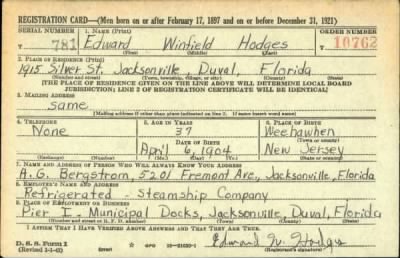 REGISTRATION CARD—(Men born on or after February 17, 1897 and on or before December 31, 1921)
SERIAL NUMBER 1. NAME (Print) ORDER NUMBER
T 781 Edward Winfield Hodges T 10762
(First) (Middle) (Last)
2. PLACE OF RESIDENCE (Print)
1915 Silver St. Jacksonville, Duval, Florida
(Number and street) (Town, township, village, or city) (County) (State)
[THE PLACE OF RESIDENCE GIVEN ON THE LINE ABOVE WILL DETERMINE LOCAL BOARD
JURISDICTION; LINE 2 OF REGISTRATION CERTIFICATE WILL BE IDENTICAL]
3. MAILING ADDRESS
same
[Mailing address if other than place indicated on line 2. If same insert word same]
4. TELEPHONE 5. AGE IN YEARS 6. PLACE OF BIRTH
None 37 Weehawhen
DATE OF BIRTH (Town or county)
April 6, 1904 New Jersey
(Exchange) (Number) (Mo.) (Day) (Yr.) (State or country)
7. NAME AND ADDRESS OF PERSON WHO WILL ALWAYS KNOW YOUR ADDRESS
A. G. Bergstrom, 5201 Fremont Ave., Jacksonville, Florida
8. EMPLOYER'S NAME AND ADDRESS
Refrigerated - Steamship Company
9. PLACE OF EMPLOYMENT OR BUSINESS
Pier I - Municipal Docks, Jacksonville, Duval, Florida
(Number and street or R. F. D. number) (Town) (County) (State)
I AFFIRM THAT I HAVE VERIFIED ABOVE ANSWERS AND THAT THEY ARE TRUE.
D. S. S. Form 1
(Revised 1-1-42) (over)
Edward W. Hodges
(Registrant's signature)